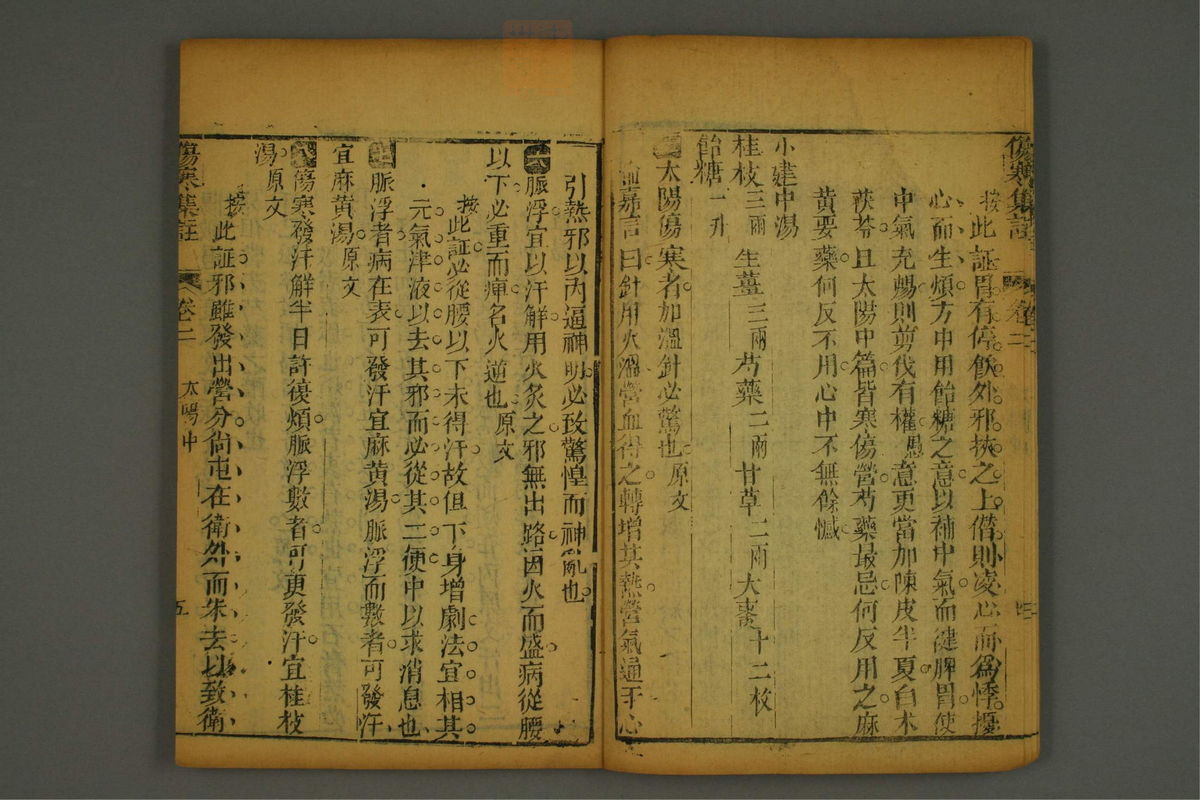 傷寒集註 卷二
按此証胃有停飲外邪挾之上僭則凌心而爲悸擾
心而生煩方中用飴糖之意以補中氣而健脾胃使
中氣充暢則剪伐有權愚意更當加陳皮半夏白术
茯苓且太陽中篇皆寒傷營芍藥最忌何反用之麻
黃要藥何反不用心中不無餘憾
小建中湯
桂枝三兩 生薑三兩 芍藥二兩 甘草二兩 大棗十二枚
飴糖一升
太陽傷寒者加溫針必驚也原文
喻嘉言曰針用火溫營血得之轉增其熱營氣通于心
引熱邪以內逼神明必致驚惶而神亂也
六脈浮宜以汗解用火炙之邪無出路因火而盛病從腰
以下必重而痺名火逆也原文
按此証必從腰以下未得汗故但下身增劇法宜相其
元氣津液以去其邪而必從其二便中以求消息也
七脈浮者病在表可發汗宜麻黃湯脈浮而數者可發汗
宜麻黃湯原文
八傷寒發汗解半日許復煩脈浮數者可更發汗宜桂枝
湯原文
按此証邪雖發出營分尙屯在衛外而未去以致衛
傷寒集註 卷二 太陽中 五